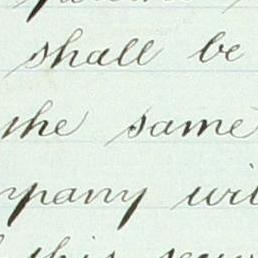 shall be
the same
mpany wil
this